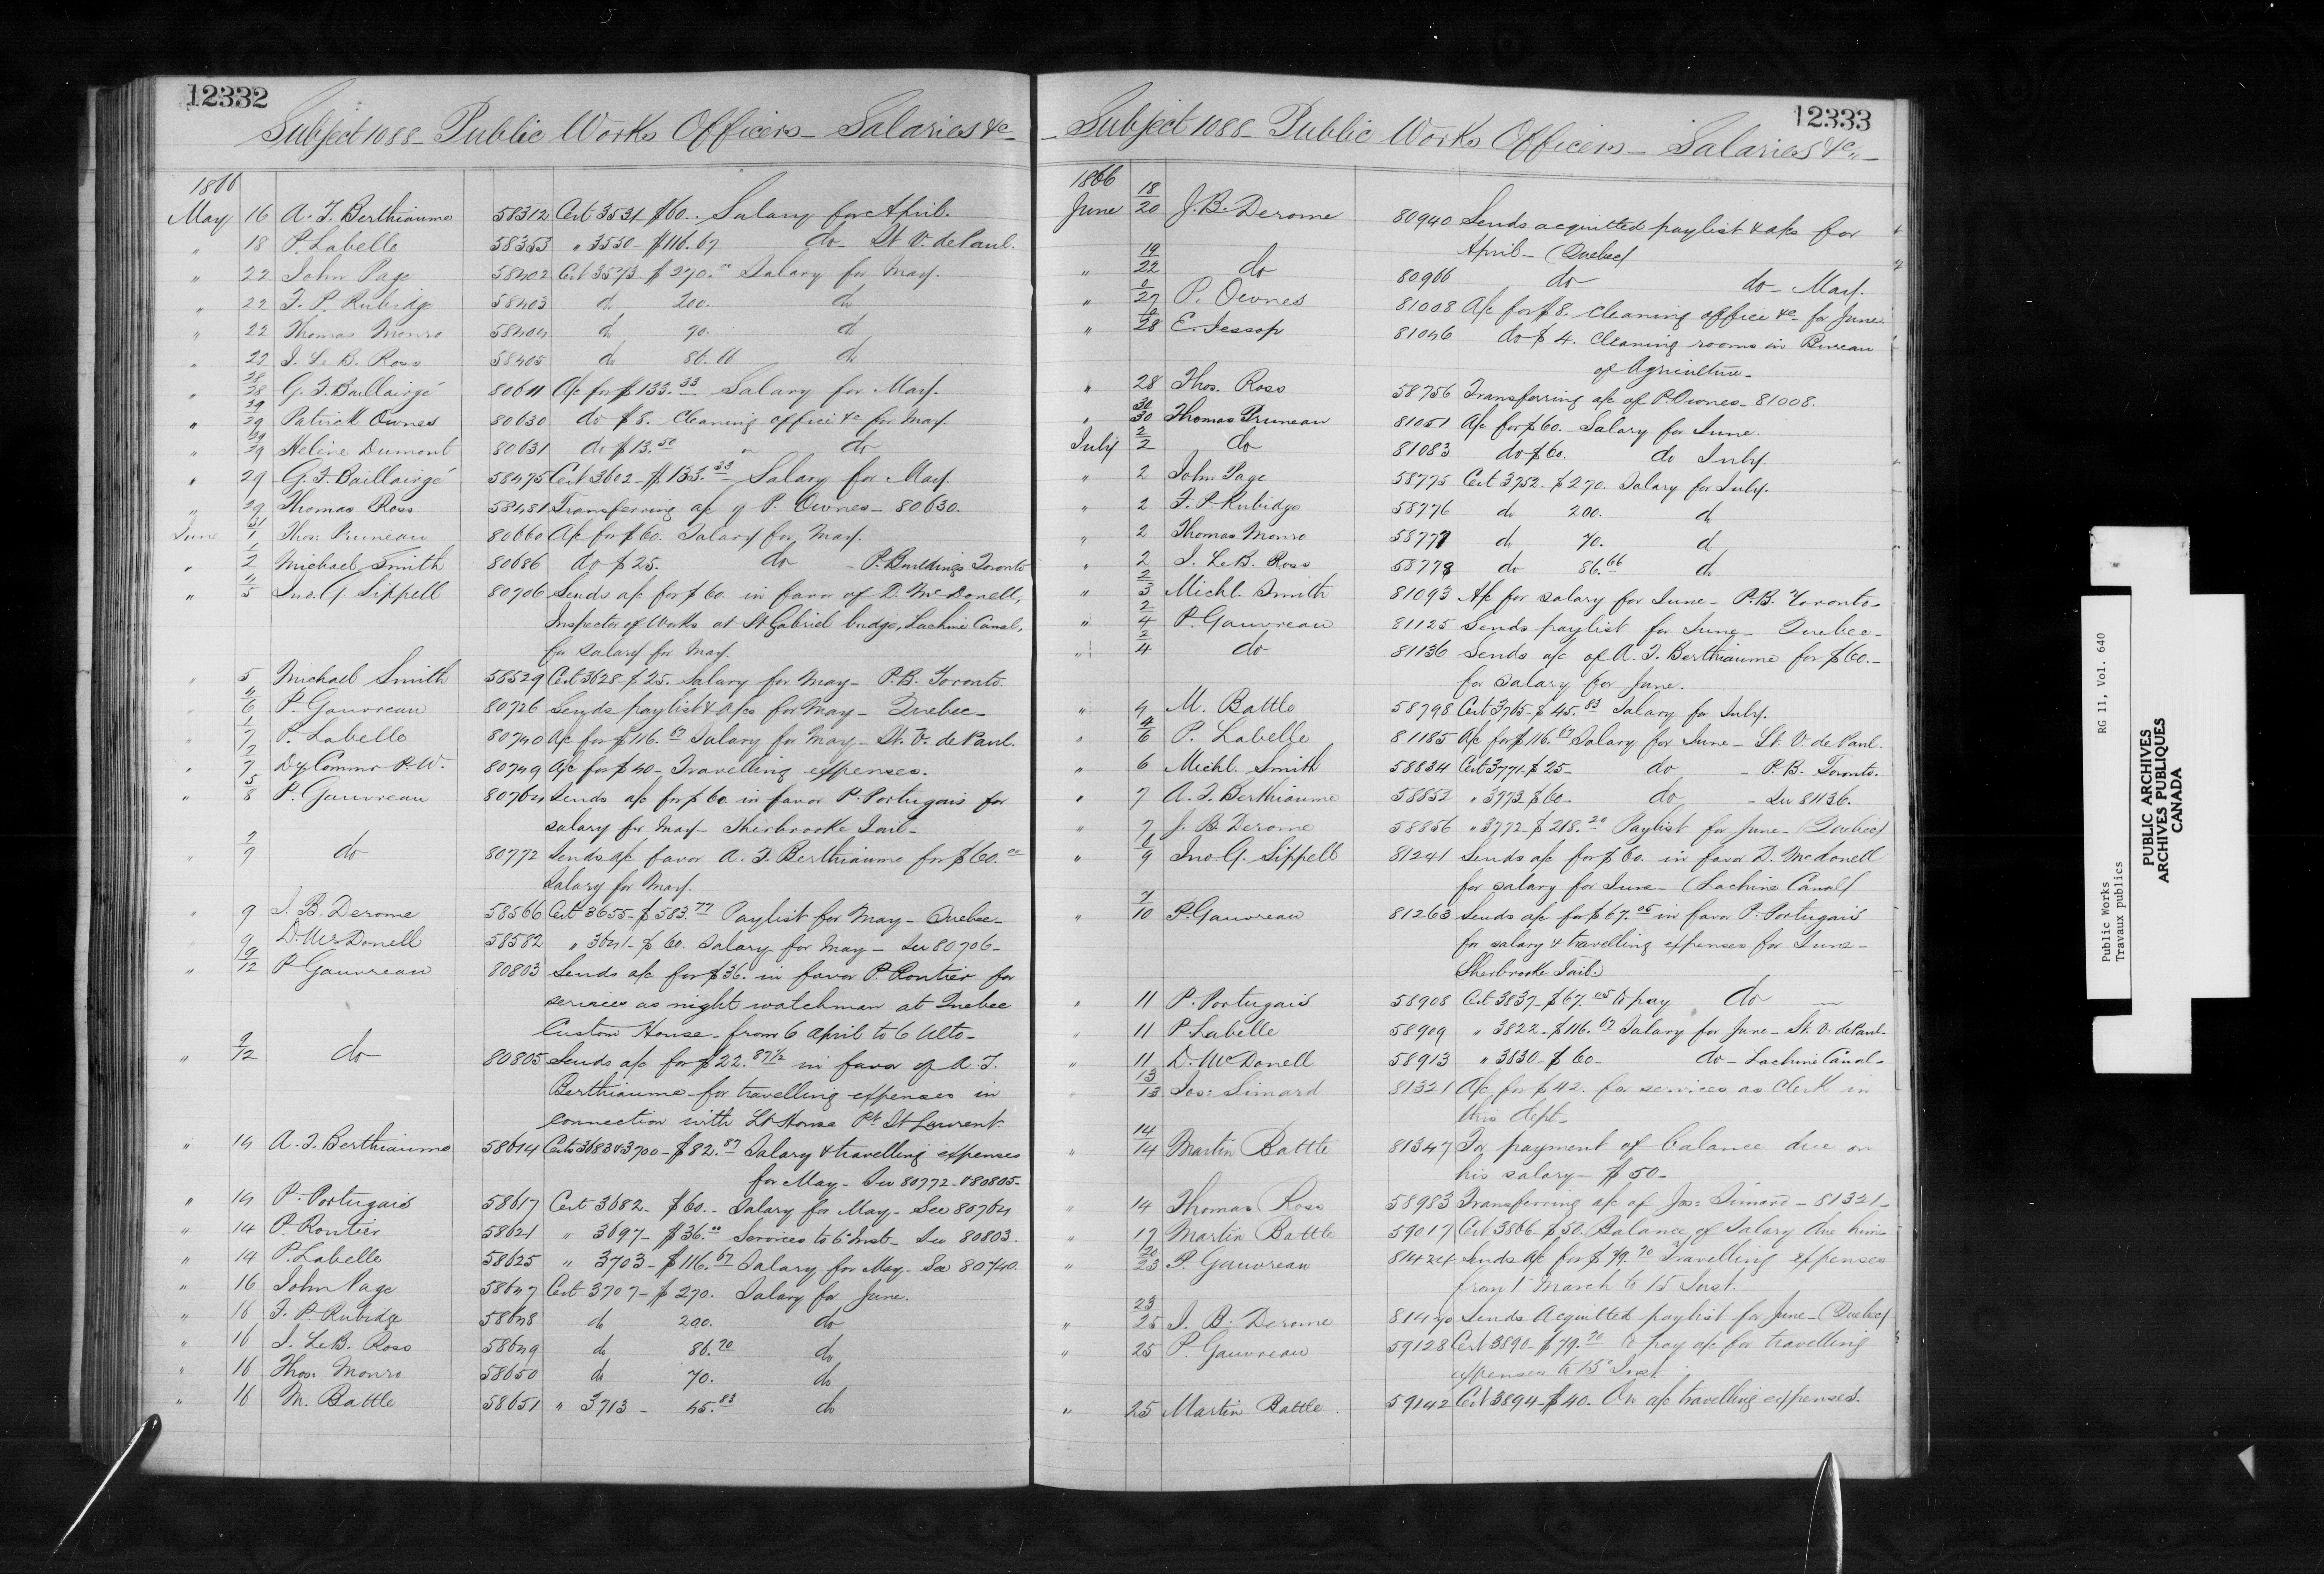 12332
Subject 1088 - Public Works Officers - Salaries &c
1866
May 16 A. F. Berthiaume 58312 Cert 3531 $60. Salary for April.
" 18 P. Labelle 58353 " 3550 - $116.67 do - St V. de Paul.
" 22 John Page 58402 Cert 3573 - $270.00 Salary for May.
" 22 F. P. Rubidge 58403 do 200. do
" 22 Thomas Monro 58404 do 70. do
" 22 J. Le B. Ross 58405 do 86.66 do
" 28/28 G. F. Baillairgé 80611 A/c for $133.33 Salary for May.
" 29/29 Patrick Ownes 80630 do $8. Cleaning office &c for May.
" 29/29 Helène Dumont 80631 do $13.50 " do
" 29 G. F. Baillairgé 58475 Cert 3602 - $133.33 Salary for May.
" 29 Thomas Ross 58481 Transferring a/c of P. Ownes - 80630.
June 31/1 Thos: Pruneau 80660 A/c for $60. Salary for May.
" 1/2 Michael Smith 80686 do $25. do - P. Buildings Toronto
" 4/5 Jno. G Sippell 80706 Sends a/c for $60. in favor of D. McDonell,
Inspector of Works at St Gabriel bridge, Lachine Canal,
for salary for May.
" 5 Michael Smith 58529 Cert 3628 - $25. Salary for May - P.B. Toronto
" 4/6 P. Gauvreau 80726 Sends paylist & a/cs for May - Quebec -
" 1/7 P. Labelle 80740 A/c for $116.67 Salary for May - St. V. de Paul.
" 2/7 Dy Commr P.W. 80749 A/c for $40 - Travelling expenses.
" 5/8 P. Gauvreau 80764 Sends a/c for $60 in favor P. Portugais for
salary for May - Sherbrooke Jail -
" 7/9 do 80772 Sends a/c favor A. F. Berthiaume for $60.00
Salary for May.
" 9 J. B. Derome 58566 Cert 3655 - $583.77 Paylist for May - Quebec -
" 9 D. McDonell 58582 " 3641 - $60. Salary for May - See 80706 -
" 9/12 P Gauvreau 80803 Sends a/c for $36. in favor P. Routier for
services as night watchman at Quebec
Custom House - from 6 April to 6 Ulto -
" 9/12 do 80805 Sends a/c for $22.87 1/2 in favor of A. F.
Berthiaume for travelling expenses in
connection with Lt House Pt St Laurent.
" 14 A. F. Berthiaume 58614 Certs 3683 & 3700 - $82.87 Salary & travelling expenses
for May - See 80772 - & 80805 -
" 14 P. Portugais 58617 Cert 3682 - $60. - Salary for May - See 80764
" 14 P. Routier 58621 " 3697 - $36.00 Services to 6 Inst - See 80803.
" 14 P. Labelle 58625 " 3703 - $116.67 Salary for May - See 80740.
" 16 John Page 58647 Cert 3707 - $270. Salary for June.
" 16 F. P. Rubidge 58648 do 200. do
" 16 J. LeB. Ross 58649 do 86.70 do
" 16 Thos. Monro 58650 do 70. do
" 16 M. Battle 58651 " 3713 - 45.83 do
12333
Subject 1088 - Public Works Officers - Salaries &c. -
1866
June 18/20 J. B. Derome 80940 Sends acquitted paylist & a/cs for
April - (Quebec)
" 19/22 do 80966 do do - May.
" 27 P. Ownes 81008 A/c for $8. cleaning office &c for June.
" 28 E. Jessop 81046 do $4. Cleaning rooms in Bureau
of Agriculture -
" 28 Thos. Ross 58756 Transferring a/c of P. Ownes - 81008.
" 30/30 Thomas Pruneau 81051 A/c for $60. Salary for June.
July 2/2 do 81083 do $60. do July.
" 2 John Page 58775 Cert 3752. $270. Salary for July.
" 2 F. P. Rubidge 58776 do 200. do
" 2 Thomas Monro 58777 do 70. do
" 2 J. LeB. Ross 58778 do 86.66 do
" 2/3 Michl. Smith 81093 A/c for salary for June - P.B. Toronto -
" 2/4 P. Gauvreau 81125 Sends paylist for June - Quebec -
" 2/4 do 81136 Sends a/c of A. F. Berthiaume for $60. -
for salary for June.
" 4 M. Battle 58798 Cert 3765 - $45.83 Salary for July.
" 4/6 P. Labelle 81185 A/c for $116.67 Salary for June - St. V. de Paul.
" 6 Michl. Smith 58834 Cert 3771 - $25 - do - P.B. Toronto.
" 7 A. F. Berthiaume 58852 " 3773 $60 - do - See 81136.
" 7 J. B. Derome 58856 " 3772 - $218.20 Paylist for June - (Quebec)
" 6/9 Jno. G. Sippell 81241 Sends a/c for $60. in favor D. McDonell
for salary for June - (Lachine Canal)
" 7/10 P. Gauvreau 81263 Sends a/c for $67.05 in favor P. Portugais
for salary & travelling expenses for June -
Sherbrooke Jail.
" 11 P. Portugais 58908 Cert 3837 - $67.05 To pay do -
" 11 P. Labelle 58909 " 3822 - $116.67 Salary for June - St. V. de Paul -
" 11 D. McDonell 58913 " 3830 - $60 - do - Lachine Canal -
" 13/13 Jos: Simard 81321 A/c for $42. for services as Clerk in
this dept -
" 14/14 Martin Battle 81347 For payment of balance due on
his salary - $50 -
" 14 Thomas Ross 58983 Transferring a/c of Jos: Simard - 81321 -
" 17 Martin Battle 59017 Cert 3866 - $50. Balance of Salary due him -
" 20/23 P. Gauvreau 81424 Sends a/c for $79.70 Travelling expenses
from 1 March to 15 Inst.
" 23/25 J. B. Derome 81440 Sends Acquitted paylist for June - (Quebec)
" 25 P. Gauvreau 59128 Cert 3890 - $79.70 To pay a/c for travelling
expenses to 15 Inst.
" 25 Martin Battle 59142 Cert 3894 - $40. On a/c travelling expenses.
Public Works RG 11, Vol. 640
Travaux publics
PUBLIC ARCHIVES
ARCHIVES PUBLIQUES
CANADA